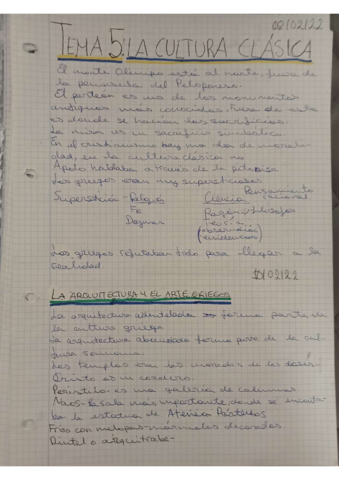 08/02/22
TEMA 5: LA CULTURA CLÁSICA
El monte Olimpo está al norte, fuera de
la península del Peloponeso.
El partenón es uno de los monumentos
antiguos más conocidos, fuera de este
es donde se hacían los sacrificios.
La misa es un sacrificio simbólico.
En el cristianismo hay una idea de morali-
dad, en la cultura clásica no
Apolo hablaba a través de la pitonisa
Los griegos eran muy supersticiosos
Pensamiento
Superstición - Religión Ciencia racional
Fe Razón/filósofos
Dogmas Teoría
(observación)
(evidencias)
Los griegos refutaban todo para llegar a la
realidad.
10/02/22
LA ARQUITECTURA Y EL ARTE GRIEGOS
La arquitectura adintelada forma parte de
la cultura griega
La arquitectura abovedada forma parte de la cul-
tura romana
Los templos eran las moradas de los dioses.
Peristilo: es una galería de columnas
Naos - La sala más importante, donde se encontra-
ba la estatua de Atenea Párthenos
Friso con metopas - mármoles decorados
Dintel o arquitrabe -